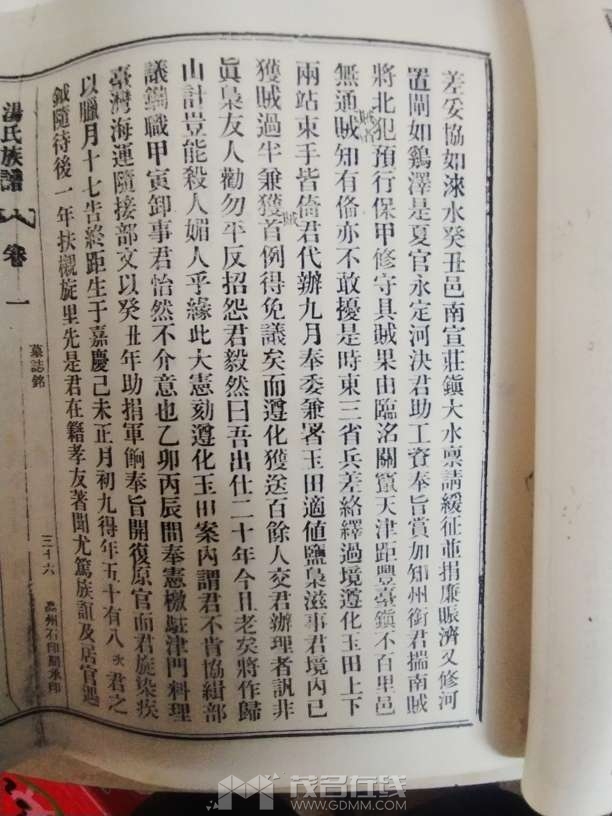 差妥協如淶水癸丑邑南宣莊鎮大水禀請緩征並捐廉賑濟又修河
置閘如鷄澤是夏官永定河決君助工資奉旨賞加知州銜君揣南賊
將北犯預行保甲修守具賊果由臨洺關竄天津距豐臺鎮不百里邑
無通賊者賊知有俻亦不敢擾是時東三省兵差絡繹過境遵化玉田上下
兩站束手皆倚君代辦九月奉委兼署玉田適値鹽梟滋事君境內已
獲賊過半兼獲首賊例得免議矣而遵化獲送百餘人交君辦理者訊非
眞梟友人勸勿平反招怨君毅然曰吾出仕二十年今且老矣將作歸
山計豈能殺人媚人乎緣此大憲劾遵化玉田案內謂君不肯協緝部
議鐫職甲寅卸事君怡然不介意也乙卯丙辰間奉憲檄駐津門料理
臺灣海運隨接部文以癸丑年助捐軍餉奉旨開復原官而君旋染疾
以臘月十七告終距生于嘉慶己未正月初九得年五十有八次君之
鉞隨待後一年扶櫬旋里先是君在籍孝友著聞尤篤族誼及居官遇
湯氏族譜
卷一
墓誌銘
三十六
高州石印閣承印
茂名在线
WWW.GDMM.COM